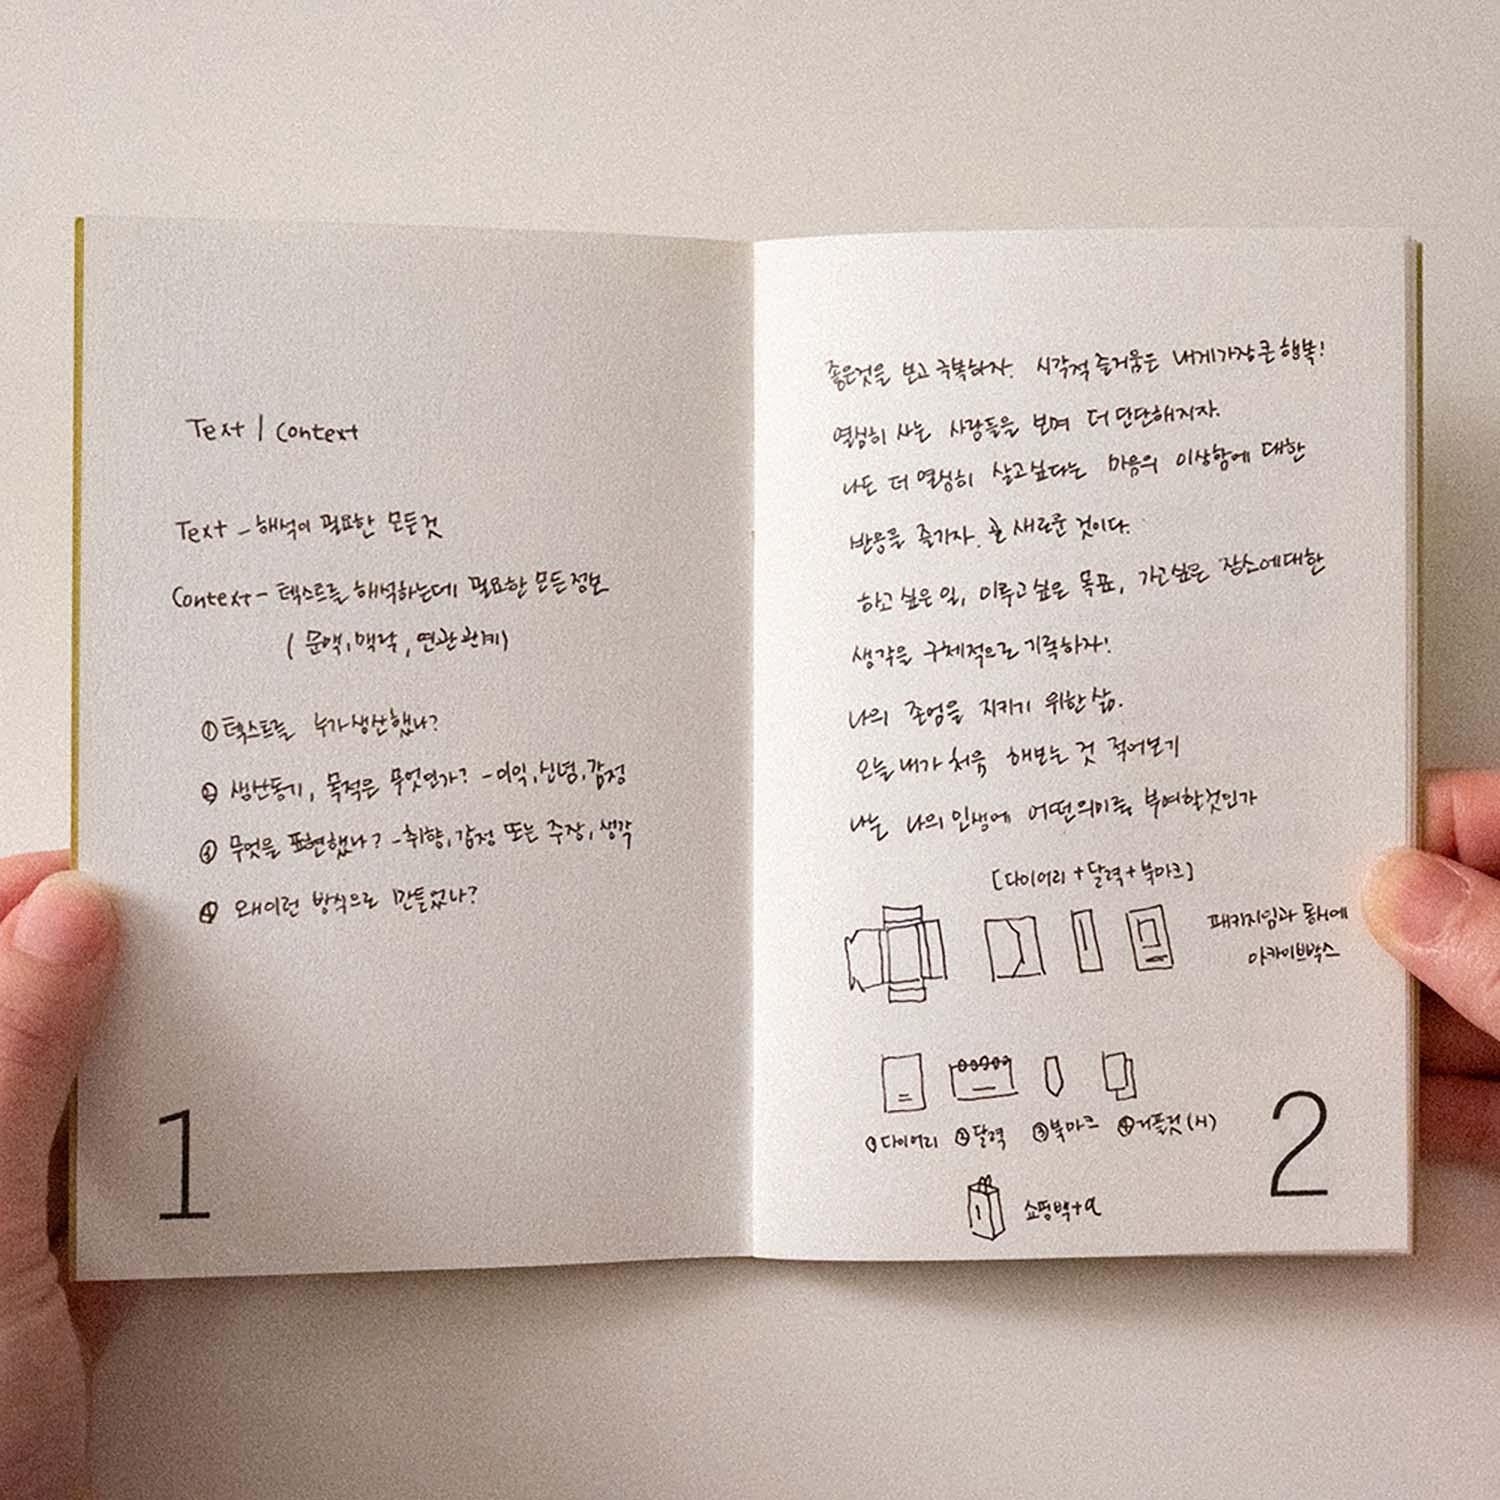 Text | Context
Text - 해석이 필요한 모든것
Context - 텍스트를 해석하는데 필요한 모든정보
(문맥, 맥락, 연관관계)
① 텍스트를 누가생산했나?
② 생산동기, 목적은 무엇인가? - 이익, 신념, 감정
③ 무엇을 표현했나? - 취향, 감정 또는 주장, 생각
④ 왜이런 방식으로 만들었나?
1
좋은것을 보고 극복하자. 시각적 즐거움은 내게가장큰행복!
열심히 사는 사람들을 보며 더 단단해지자.
나는 더 열심히 살고싶다는 마음의 이상함에 대한
반응을 즐기자. 곧 새로운 것이다.
하고싶은일, 이루고싶은 목표, 가고싶은 장소에대한
생각을 구체적으로 기록하자!
나의 존엄을 지키기 위한 삶.
오늘 내가 처음 해보는 것 적어보기
나는 나의 인생에 어떤의미를 부여할것인가
[다이어리+달력+북마크]
패키지임과 동시에
아카이브박스
① 다이어리 ② 달력 ③ 북마크 ④ 리플렛(시)
1 쇼핑백+α
2